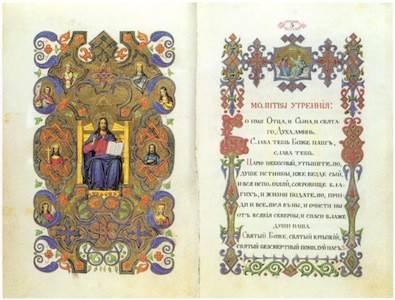 МОЛИТВЫ УТРЕННІЯ:
Во имя Отца, и Сына, и свята-
го Духа, аминь.
Слава тебѣ Боже нашъ,
слава тебѣ.
Царю небесный, утѣшителю,
душе истины, иже вездѣ сый,
и вся исполняяй, сокровище бла-
гихъ, и жизни подателю, прiи-
ди и вселися въ ны, и очисти ны
отъ всякiя скверны, и спаси блаже
души наша.
Святый Боже, святый крѣпкiй,
святый безсмертный помилуй насъ